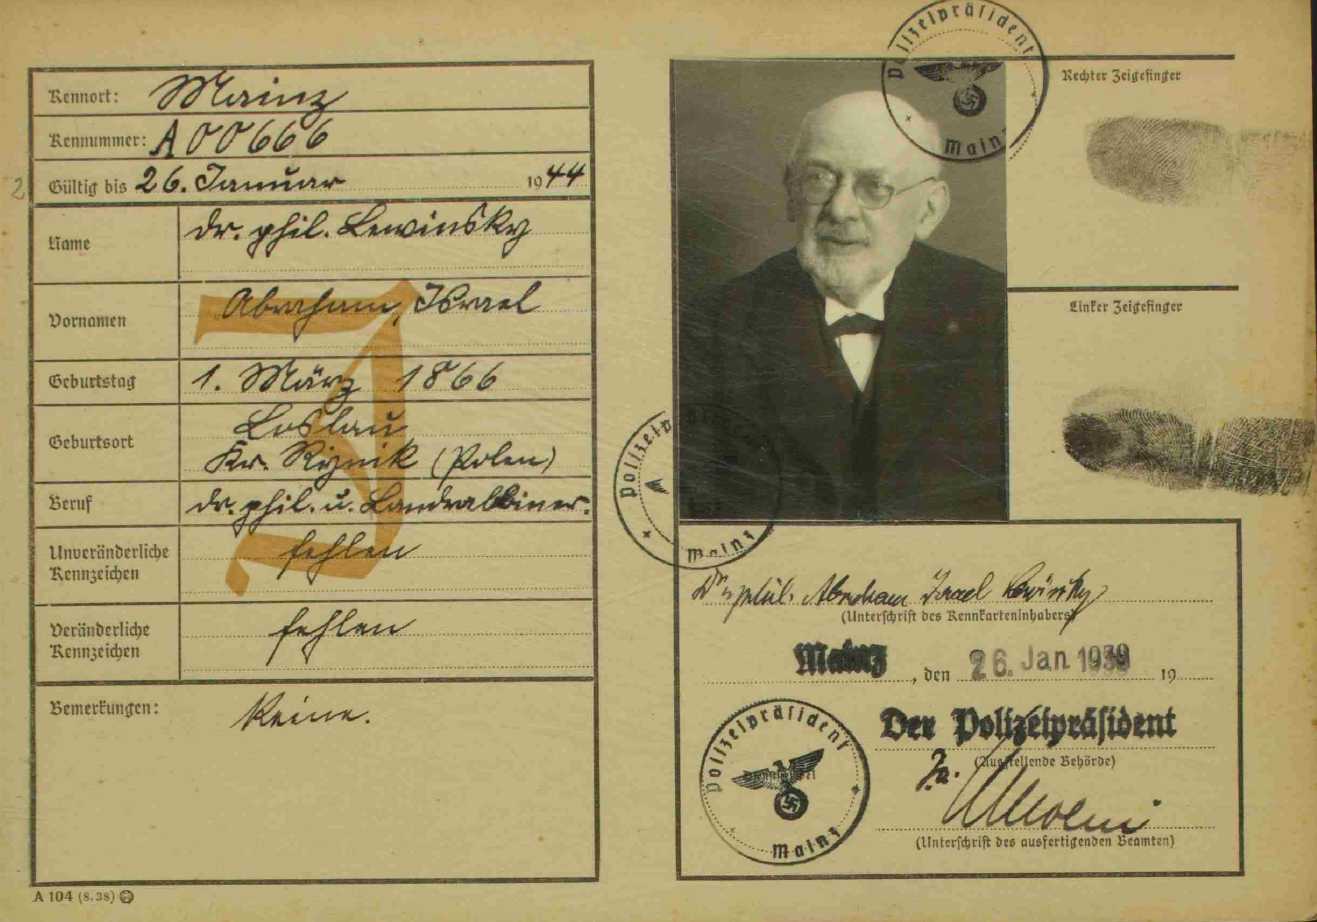 Kennort: Mainz
Kennummer: A00666
Gültig bis 26. Januar 1944
2
Name dr. phil. Lewinsky
Vornamen Abraham, Israel
J
Geburtstag 1. März 1866
Geburtsort Loslau
Kr. Rybnik (Polen)
Beruf dr. phil. u. Landrabbiner.
Unveränderliche
Kennzeichen fehlen
Veränderliche
Kennzeichen fehlen
Bemerkungen: Keine.
A 104 (8. 38)
Polizeipräsident
Mainz
Rechter Zeigefinger
Linker Zeigefinger
Polizeip
Mainz
Dr. phil. Abraham Israel Lewinsky
(Unterschrift des Kennkarteninhabers)
Mainz, den 26. Jan 1939 19
Polizeipräsident
Mainz
Der Polizeipräsident
(Ausstellende Behörde)
(Unterschrift des ausfertigenden Beamten)